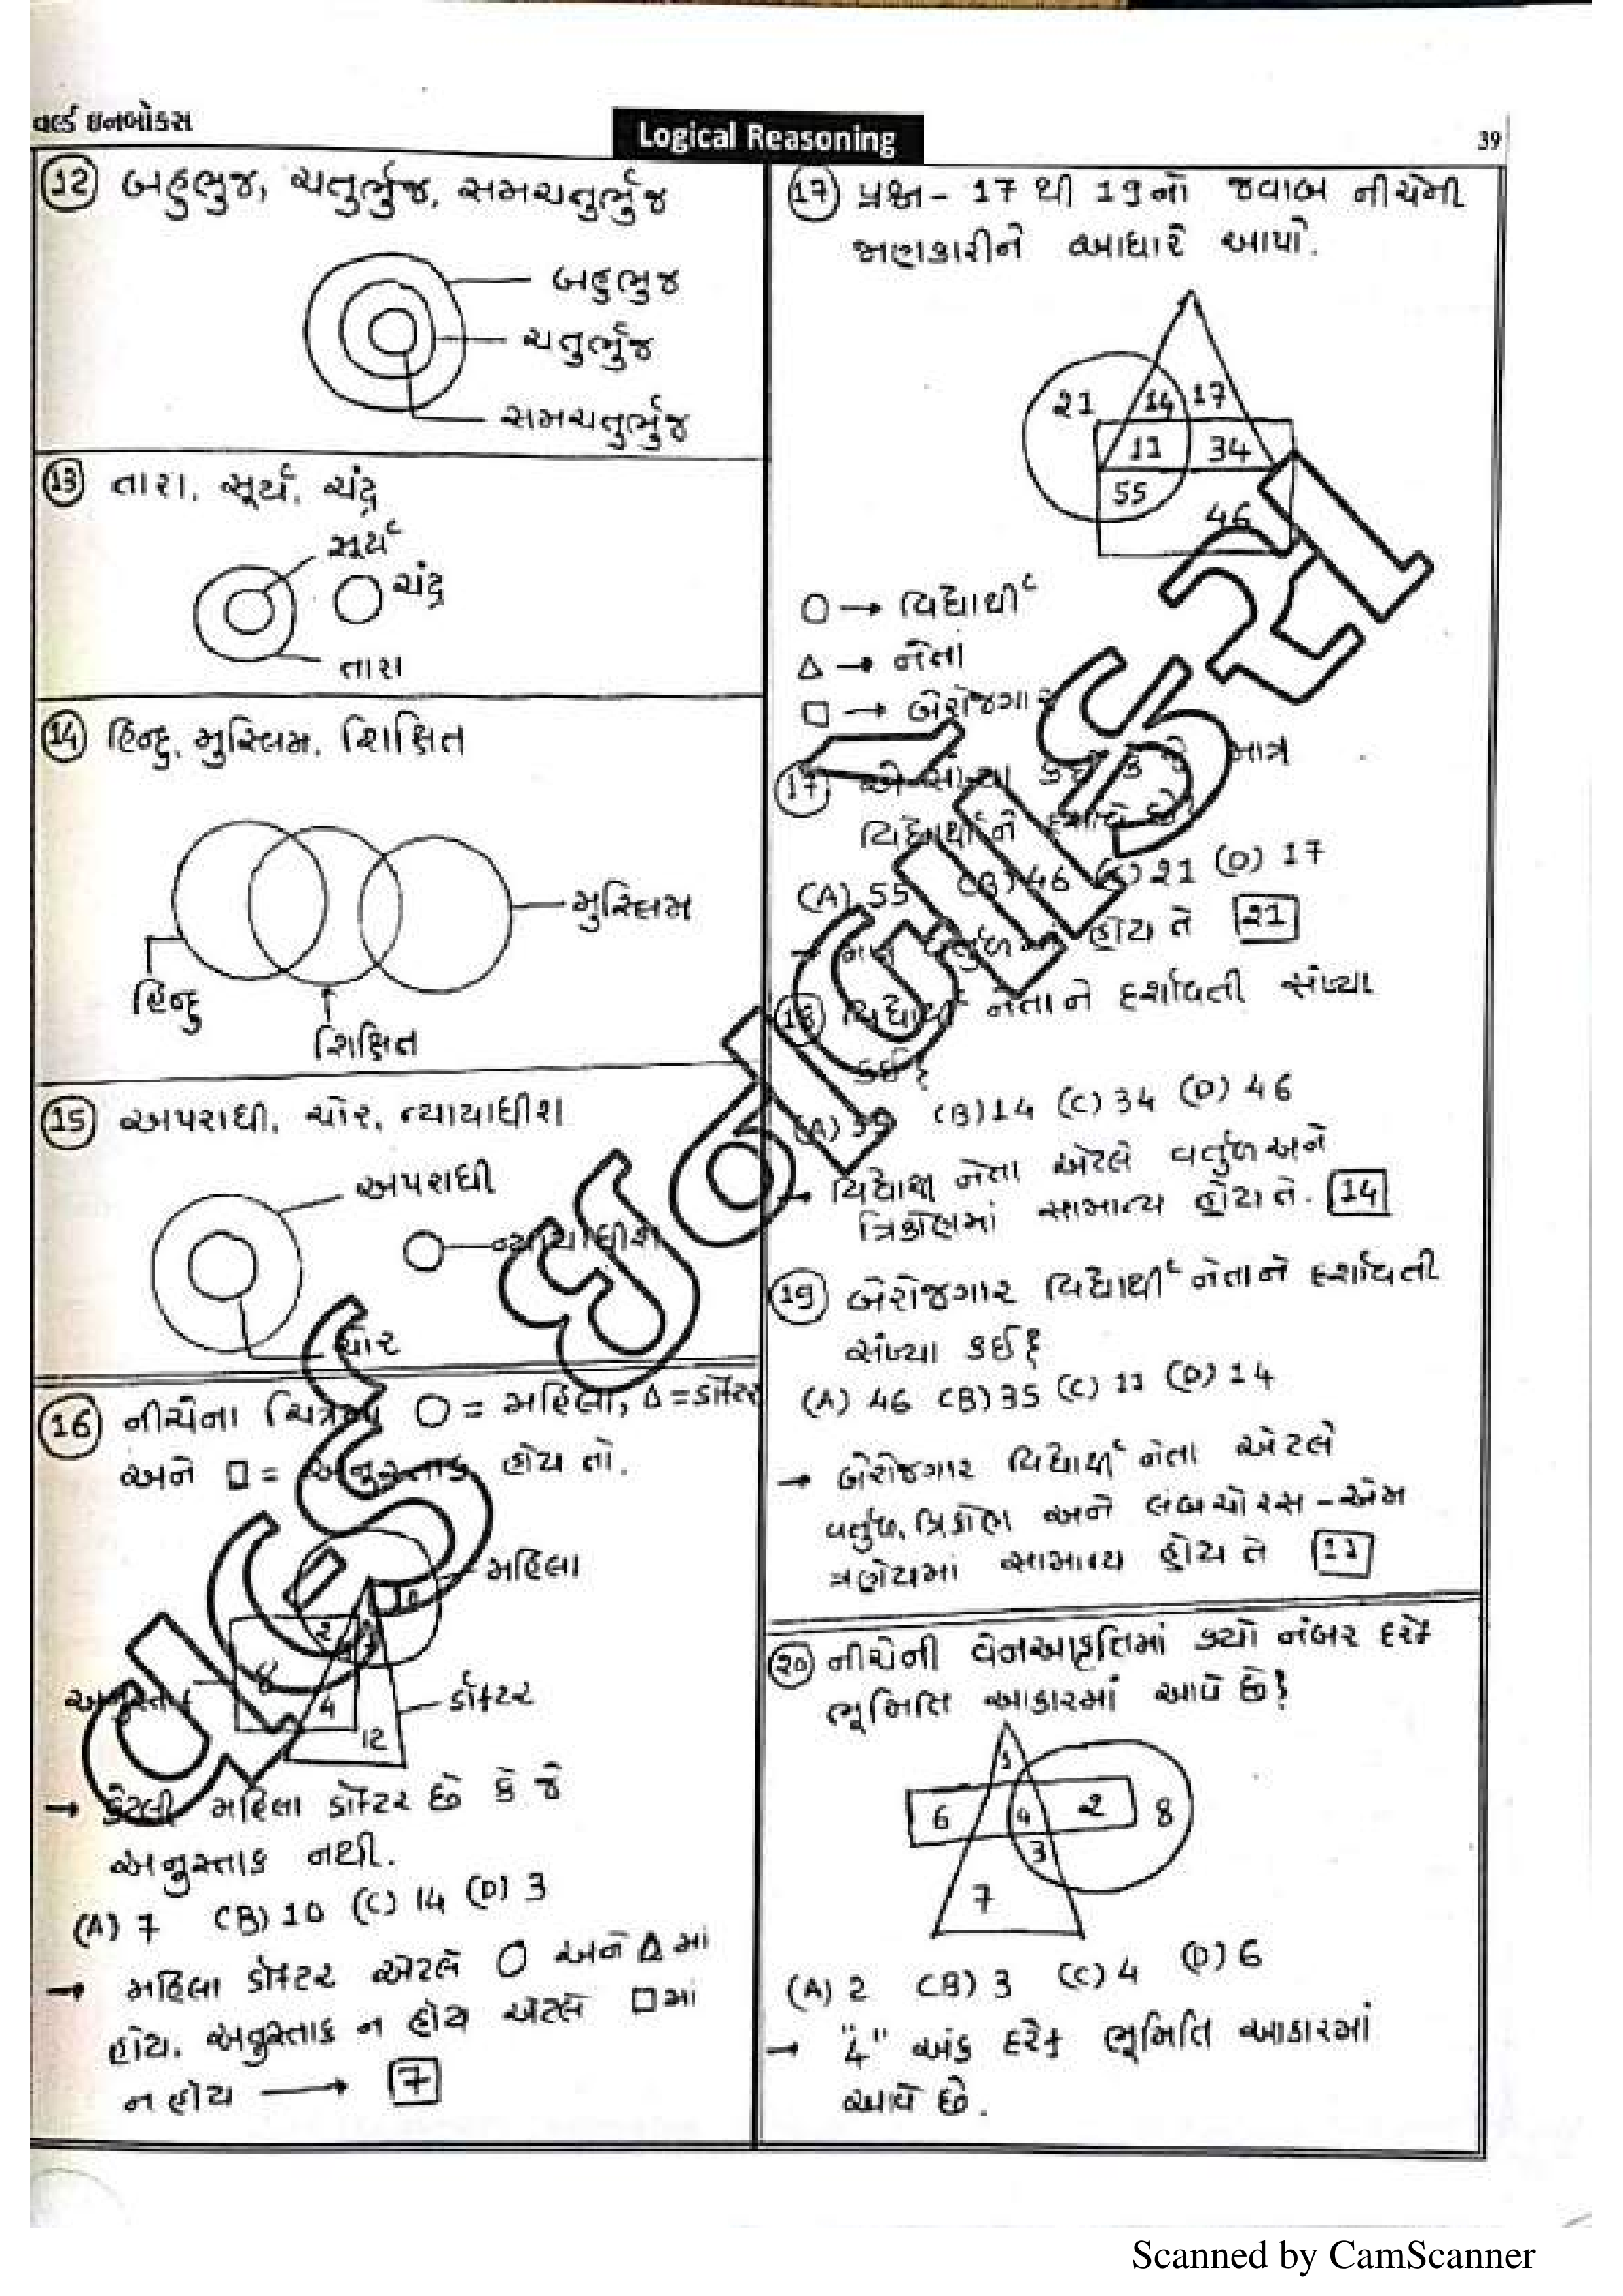 વર્લ્ડ ઇનબોક્સ
Logical Reasoning
39
12 બહુભુજ, ચતુર્ભુજ, સમચતુર્ભુજ
બહુભુજ
ચતુર્ભુજ
સમચતુર્ભુજ
13 તારા, સૂર્ય, ચંદ્ર
સૂર્ય
ચંદ્ર
તારા
14 હિન્દુ, મુસ્લિમ, શિક્ષિત
મુસ્લિમ
હિન્દુ
શિક્ષિત
15 અપરાધી, ચોર, ન્યાયાધીશ
અપરાધી
ન્યાયાધીશ
ચોર
16 નીચેના ચિત્રમાં ○ = મહિલા, Δ = ડૉક્ટર
અને □ = અનુસ્તાક હોય તો.
મહિલા
2
7
8
4
ડૉક્ટર
12
→ કેટલી મહિલા ડૉક્ટર છે કે જે
અનુસ્તાક નથી.
(A) 7 (B) 10 (C) 14 (D) 3
→ મહિલા ડૉક્ટર એટલે ○ અને Δ માં
હોય. અનુસ્તાક ન હોય એટલે □ માં
ન હોય → 7
17 પ્રશ્ન - 17 થી 19નો જવાબ નીચેની
જાણકારીને આધારે આપો.
21 14 17
11 34
55
46
○ → વિદ્યાર્થી
Δ → નેતા
□ → બેરોજગાર
17 એ સંખ્યા કઈ કે જે માત્ર
વિદ્યાર્થીને દર્શાવે છે?
(A) 55 (B) 46 (C) 21 (D) 17
→ માત્ર વર્તુળમાં હોય તે 21
18 વિદ્યાર્થી નેતાને દર્શાવતી સંખ્યા
કઈ?
(A) (B) 14 (C) 34 (D) 46
→ વિદ્યાર્થી નેતા એટલે વર્તુળ અને
ત્રિકોણમાં સામાન્ય હોય તે. 14
19 બેરોજગાર વિદ્યાર્થી નેતાને દર્શાવતી
સંખ્યા કઈ?
(A) 46 (B) 35 (C) 11 (D) 14
→ બેરોજગાર વિદ્યાર્થી નેતા એટલે
વર્તુળ, ત્રિકોણ અને લંબચોરસ - એમ
ત્રણેયમાં સામાન્ય હોય તે 11
20 નીચેની વેનઆકૃતિમાં ક્યો નંબર દરેક
ભૂમિતિ આકારમાં આવે છે?
1
6 4 2 8
3
7
(A) 2 (B) 3 (C) 4 (D) 6
→ "4" અંક દરેક ભૂમિતિ આકારમાં
આવે છે.
Scanned by CamScanner